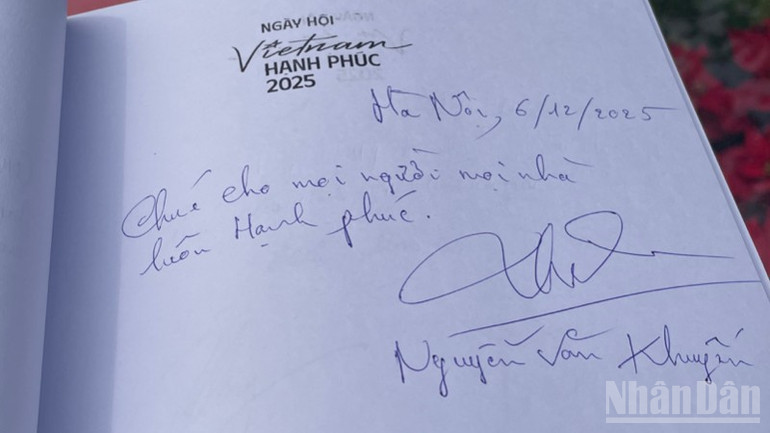 NGÀY HỘI
Vietnam
HẠNH PHÚC
2025
Hà Nội, 6/12/2025
Chúc cho mọi người mọi nhà
luôn Hạnh phúc.
Nguyễn Văn Khuyến
Nhân Dân